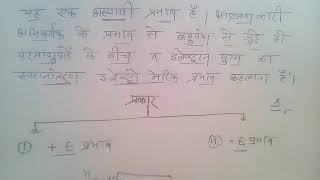 यह एक अस्थायी प्रभाव है। आक्रमणकारी
अभिकर्मक के प्रभाव से बहुबंध से जुड़े दो
परमाणुओं के बीच π इलेक्ट्रान युग्म का
स्थानांतरण इलेक्ट्रो मेरिक प्रभाव कहलाता है।
प्रकार
① +E प्रभाव
② -E प्रभाव
H